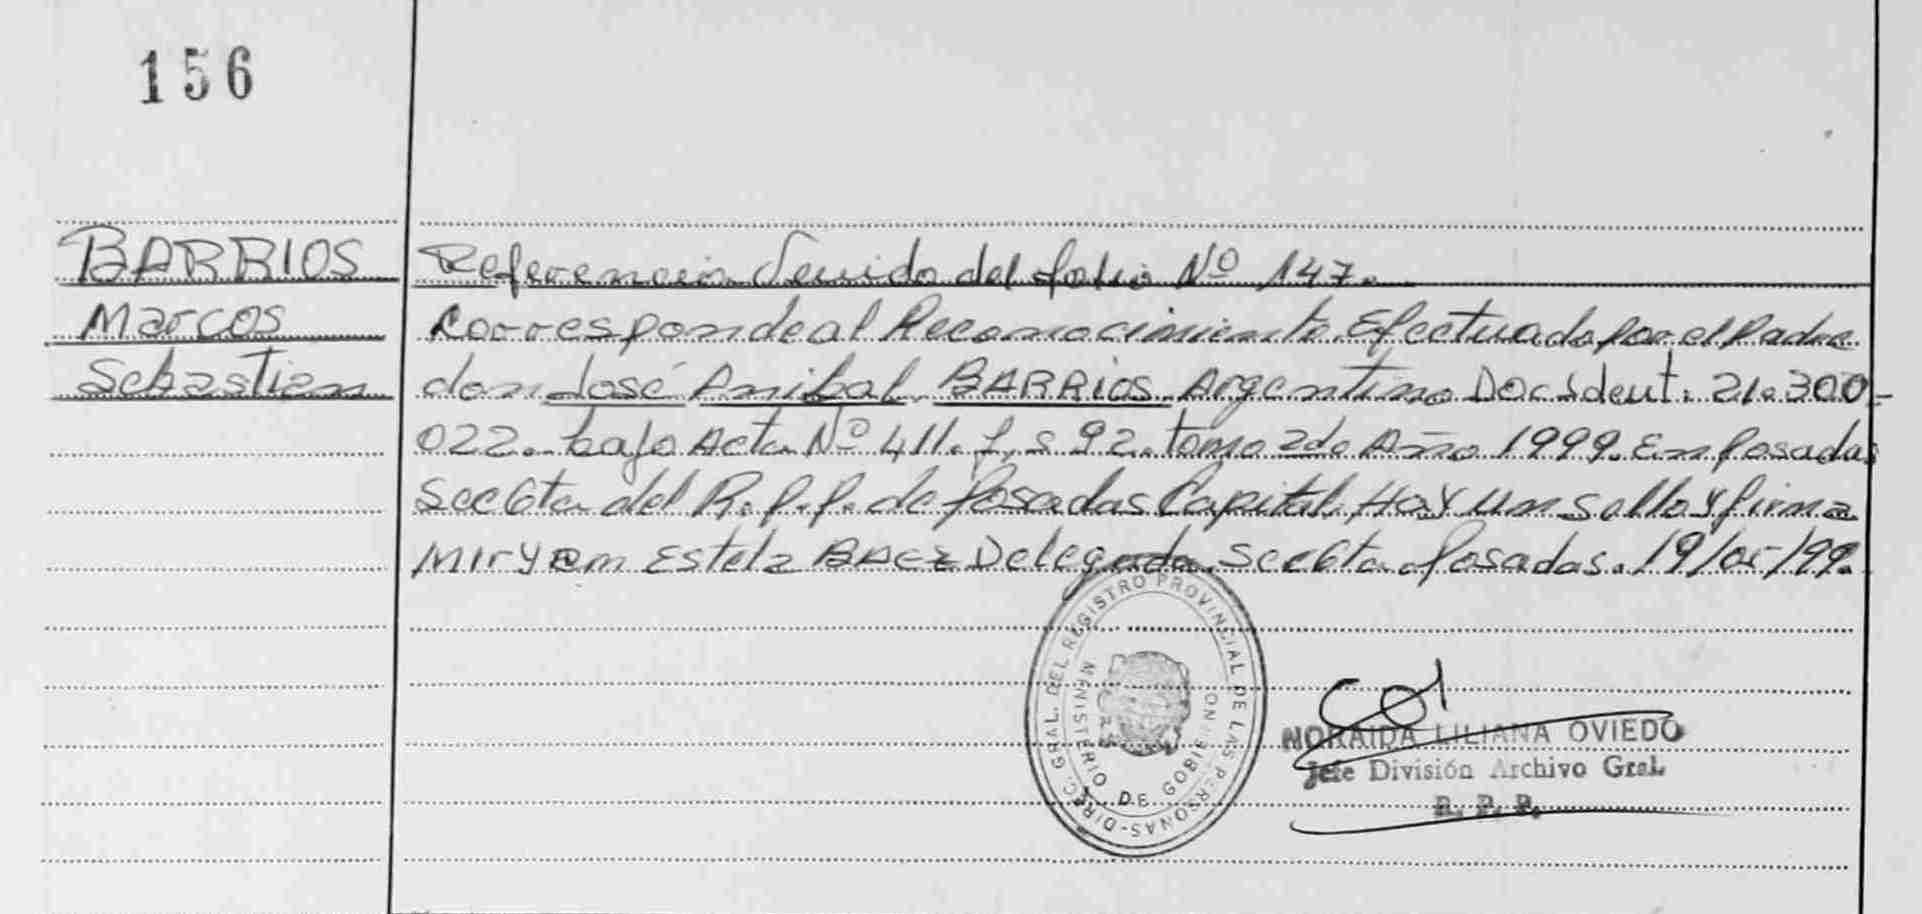 156
BARRIOS
Marcos
Sebastian
Referencia Venido del folio Nº 147.
Corresponde al Reconocimiento Efectuado por el Padre
don José Anibal BARRIOS Argentino Doc Ident: 21.300-
022. bajo Acta Nº 411. f, s 92. tomo 2do Año 1999. En Posadas
Secc 6ta del R.P.P. de Posadas Capital. Hay un sello y firma
Miryam Estela BAEZ Delegada Secc 6ta Posadas. 19/05/99.
DIREC. GRAL. DEL REGISTRO PROVINCIAL DE LAS PERSONAS-
MINISTERIO DE GOBIERNO
NORAIDA LILIANA OVIEDO
Jefe División Archivo Gral.
R. P. P.